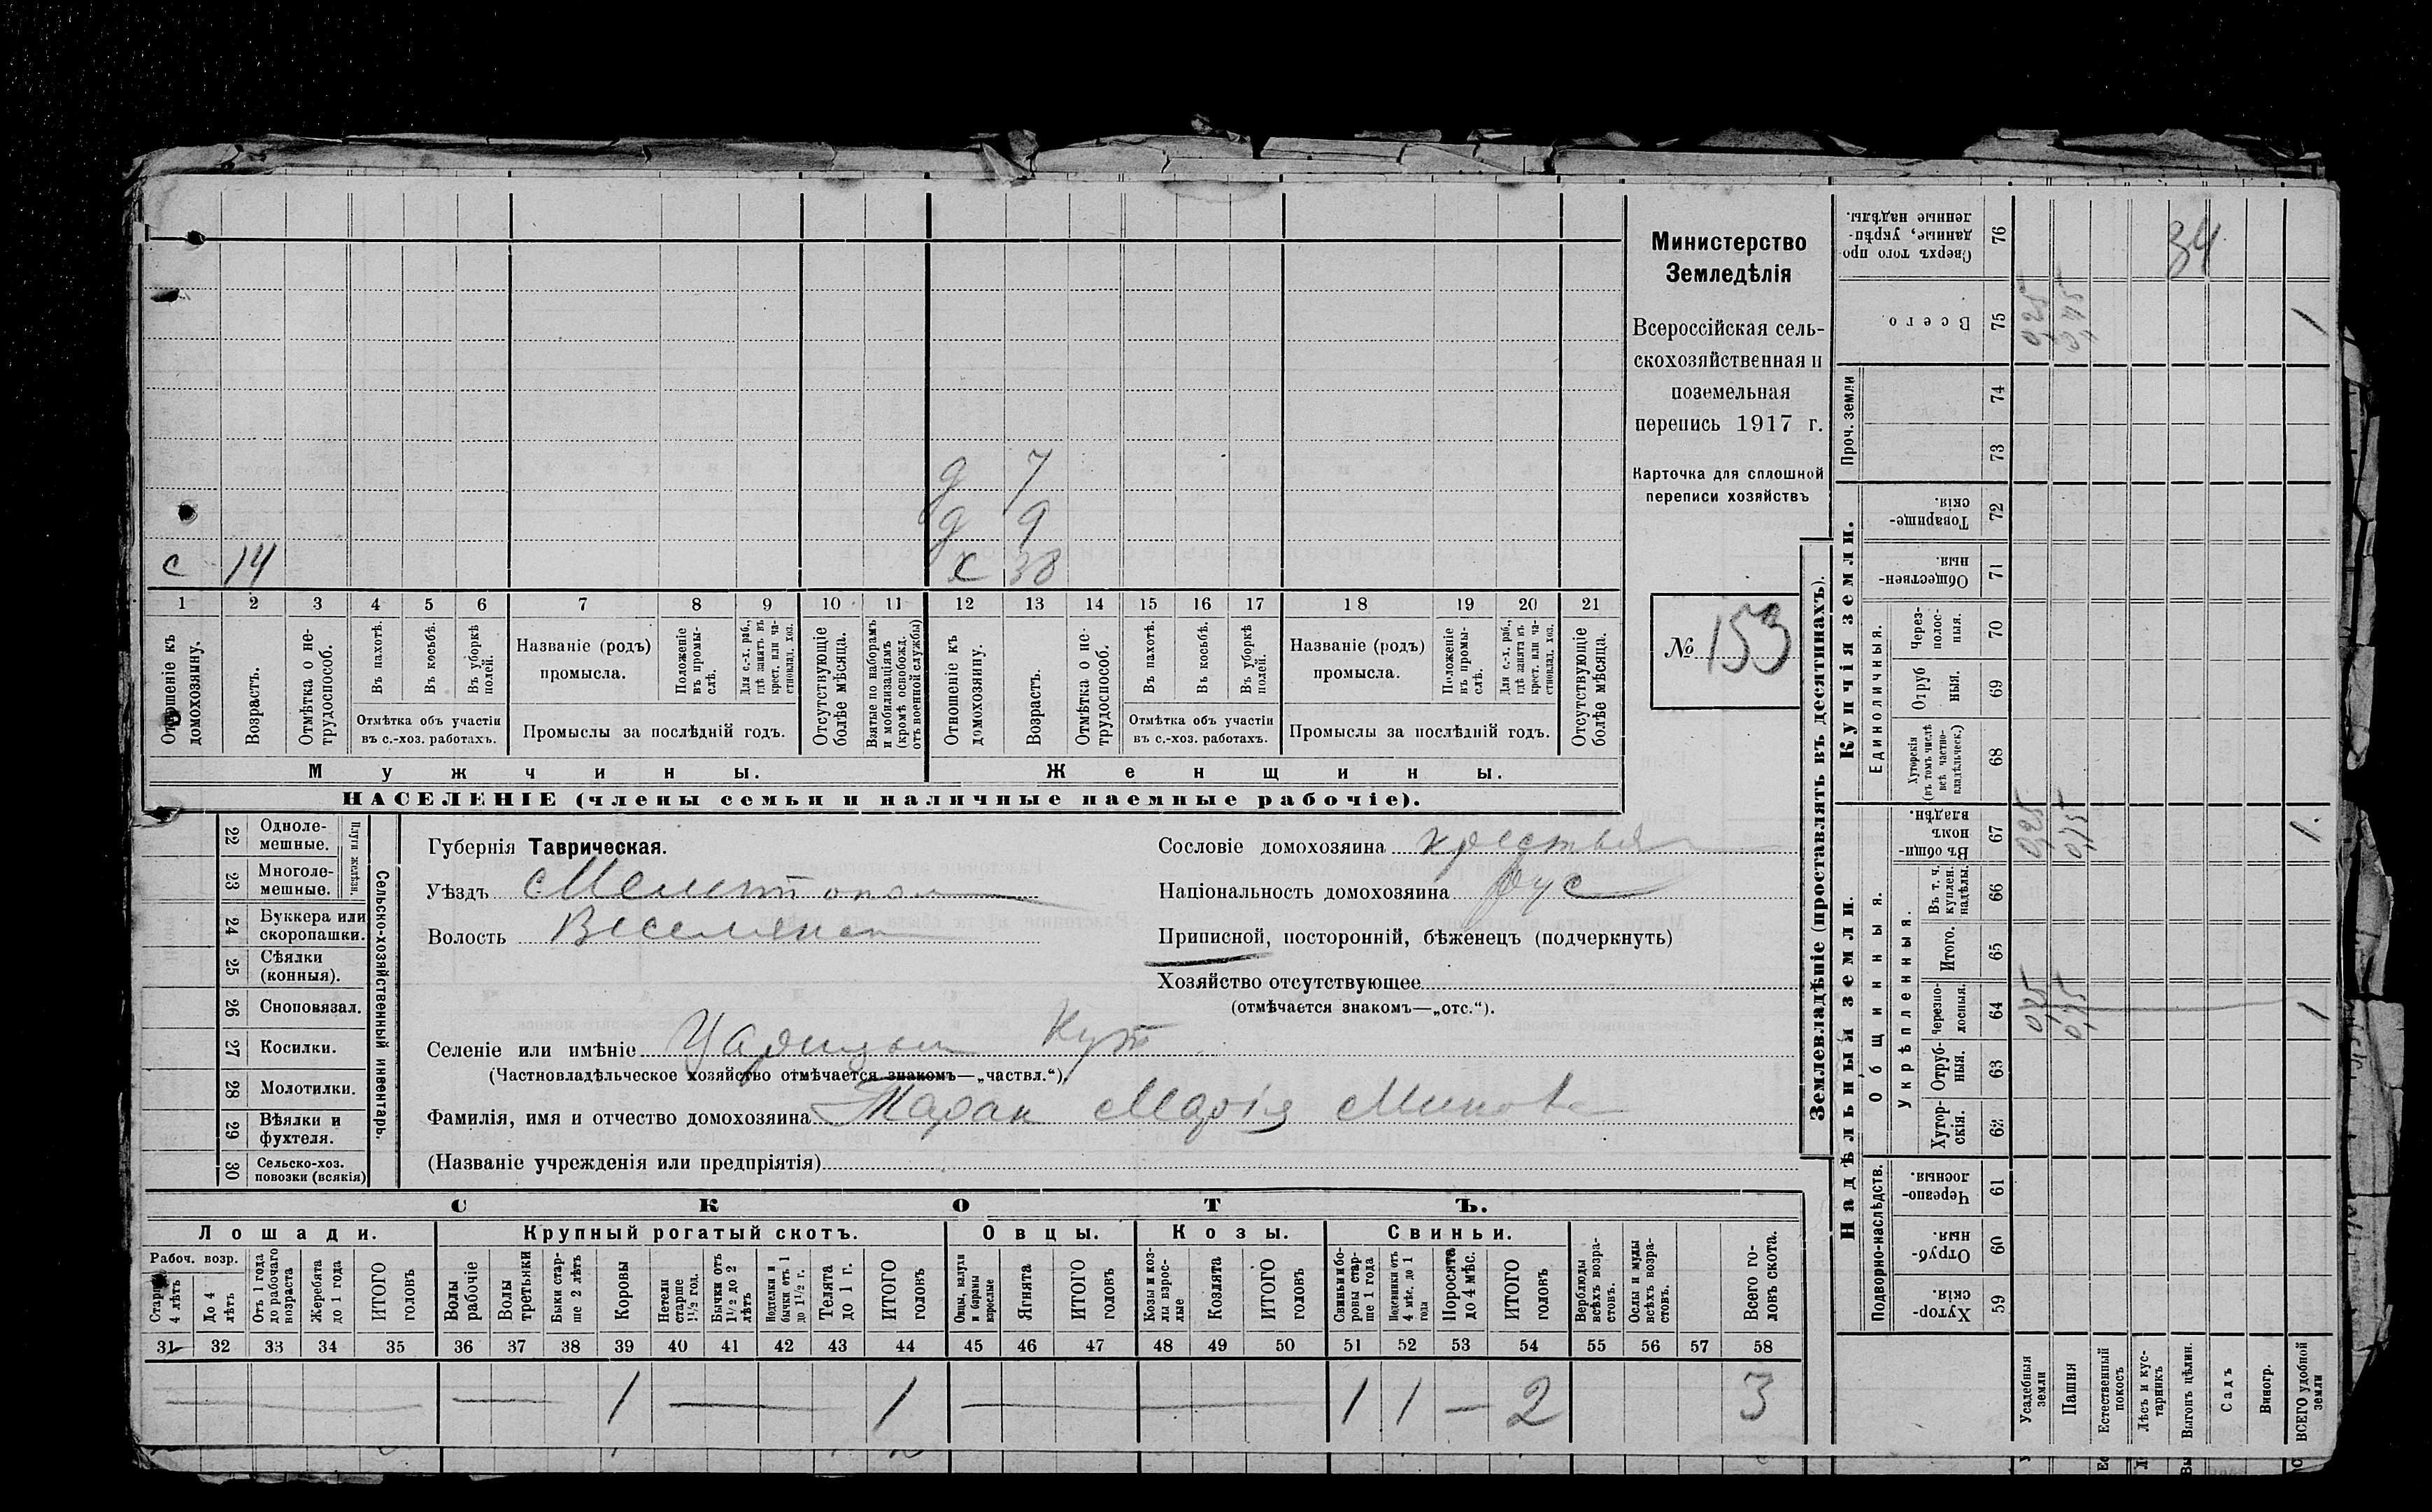 Министерство
Земледѣлія
Всероссійская сель-
скохозяйственная и
поземельная
перепись 1917 г.
Карточка для сплошной
переписи хозяйствъ
№ 153
д 7
д 9
с 14
х 38
1 2 3 4 5 6 7 8 9 10 11 12 13 14 15 16 17 18 19 20 21
Отношеніе къ домохозяину.
Возрастъ.
Отмѣтка о не-трудоспособ.
Въ пахотѣ.
Въ косьбѣ.
Въ уборкѣ полей.
Отмѣтка объ участіи
въ с.-хоз. работахъ.
Названіе (родъ)
промысла.
Положеніе въ промы-слѣ.
Для с.-х. раб., гдѣ занятъ въ крест. или ча-стновлад. хоз.
Промыслы за послѣдній годъ.
Отсутствующіе болѣе мѣсяца.
Взятые по наборамъ и мобилизаціямъ (кромѣ освобожд. отъ военной службы)
Отношеніе къ домохозяину.
Возрастъ.
Отмѣтка о не-трудоспособ.
Въ пахотѣ.
Въ косьбѣ.
Въ уборкѣ полей.
Отмѣтка объ участіи
въ с.-хоз. работахъ.
Названіе (родъ)
промысла.
Положеніе въ промы-слѣ.
Для с.-х. раб., гдѣ занята въ крест. или ча-стновлад. хоз.
Промыслы за послѣдній годъ.
Отсутствующіе болѣе мѣсяца.
Мужчины.
Женщины.
НАСЕЛЕНІЕ (члены семьи и наличные наемные рабочіе).
Сельско-хозяйственный инвентарь.
Плуги желѣзн.
22 Одноле-
мешные.
23 Многоле-
мешные.
24 Буккера или
скоропашки.
25 Сѣялки
(конныя).
26 Сноповязал.
27 Косилки.
28 Молотилки.
29 Вѣялки и
фухтеля.
30 Сельско-хоз.
повозки (всякія)
Губернія Таврическая.
Уѣздъ
Волость
Селеніе или имѣніе Царицын Кут
(Частновладѣльческое хозяйство отмѣчается знакомъ—„частвл.“).
Фамилія, имя и отчество домохозяина Таран Марія
(Названіе учрежденія или предпріятія)
Сословіе домохозяина крестья
Національность домохозяина рус
Приписной, посторонній, бѣженецъ (подчеркнуть)
Хозяйство отсутствующее
(отмѣчается знакомъ—„отс.“).
СКОТЪ.
Лошади.
Крупный рогатый скотъ.
Овцы.
Козы.
Свиньи.
Рабоч. возр.
Старше 4 лѣтъ
До 4 лѣтъ
Отъ 1 года до рабочаго возраста
Жеребята до 1 года
ИТОГО головъ
Волы рабочіе
Волы третьяки
Быки стар-ше 2 лѣтъ
Коровы
Нетели старше 1½ год.
Бычки отъ 1½ до 2 лѣтъ
Подтелки и бычки отъ 1 до 1½ г.
Телята до 1 г.
ИТОГО головъ
Овцы, валухи и бараны взрослые
Ягнята
ИТОГО головъ
Козы и коз-лы взрос-лые
Козлята
ИТОГО головъ
Свиньи и бо-ровы стар-ше 1 года
Подсвинки отъ 4 мѣс. до 1 года
Поросята до 4 мѣс.
ИТОГО головъ
Верблюды всѣхъ возра-стовъ.
Ослы и мулы всѣхъ возра-стовъ.
Всего го-ловъ скота.
31 32 33 34 35 36 37 38 39 40 41 42 43 44 45 46 47 48 49 50 51 52 53 54 55 56 57 58
— — 1 — 1 — — 1 1 — 2 3
Землевладѣніе (проставлять въ десятинахъ).
Надѣльныя земли.
Купчія земли.
Проч. земли
Подворно-наслѣдств.
Общинныя.
Укрѣпленныя.
Единоличныя.
Сверхъ того про
данные, укрѣп-
ленные надѣлы.
76
34
Всего.
75
0,25
1
74
73
Товарище-
скія.
72
Обществен-
ныя.
71
Через-полос-ныя.
70
Отруб ныя.
69
Хуторскія (въ томъ числѣ всѣ частно-владѣльческ.)
68
Въ общин-
номъ
владѣн.
67
0,25
0,75
1.
Въ т. ч. куплен. надѣлы.
66
Итого.
65
Черезпо-лосныя.
64
0,25
0,75
1
Отруб-ныя.
63
Хутор-скія.
62
Черезпо-
лосныя.
61
Отруб-
ныя.
60
Хутор-
скія.
59
Усадебныя земли
Пашня
Естественный покосъ
Лѣсъ и кус-тарникъ
Выгонъ цѣлин.
Садъ
Виногр.
ВСЕГО удобной земли